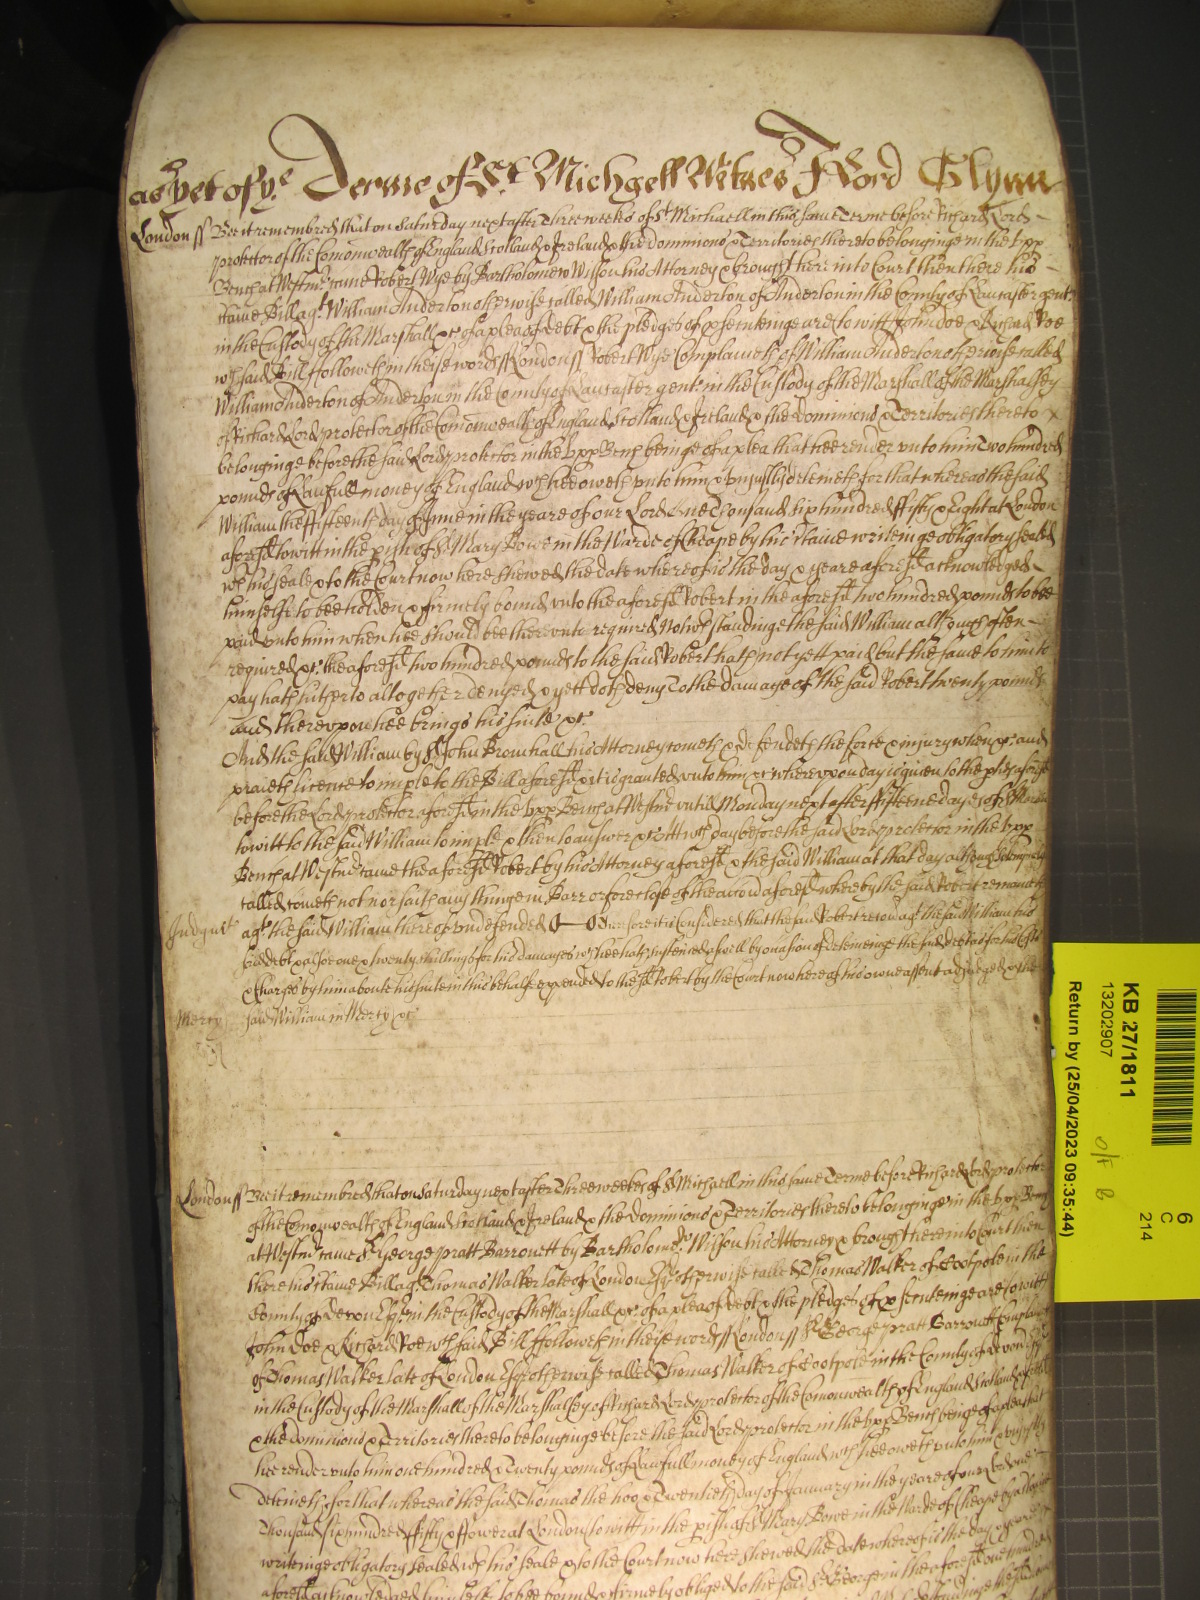 as yet of ye Terme of St Michaell Witnes J Lord Glynn
London ss Bee it remembred that on Saturday next after Three weekes of St Michaell in this same Terme before Richard Lord
protector of the Comonwealth of England Scotland & Ireland & the dominions & Territories thereto belonginge in the upp
Bench at Westmr came Robert Wye by Bartholomew Wilson his Attorney & brought here into Court then there his
Certaine Bill agt William Anderton otherwise called William Anderton of Anderton in the County of Lancaster gent
in the Custody of the Marshall &c of a plea of Debt & the pledges of psecuteinge are to witt John Doe & Richard Roe
wch said Bill followeth in theise words ss London ss Robert Wye Complaineth of William Anderton otherwise called
William Anderton of Anderton in the County of Lancaster gent in the Custody of the Marshall of the Marshalsey
of Richard Lord protector of the Comonwealth of England Scotland & Ireland & the Dominions & Territories thereto
belonginge before the said Lord protector in the upp Bench beinge of a plea that hee render unto him Two hundred
pounds of Lawfull money of England wch hee oweth unto him & unjustly deteineth for that whereas the said
William the fifteenth day of June in the yeare of our Lord One Thousand six hundred fifty & Eight at London
aforesd to witt in the pish of St Mary Bowe in the Warde of Cheape by his certaine writeinge obligatory sealed
wth his seale & to the Court now here shewed the date whereof is the day & yeare aforesd acknowledged
himselfe to bee holden & firmely bound unto the aforesd Robert in the aforesd two hundred pounds to bee
paid unto him when hee should bee thereunto required Notwthstandinge the said William although often
required &c the aforesd two hundred pounds to the said Robert hath not yett paid but the same to him to
pay hath hitherto altogether denyed & yett doth deny To the damage of the said Robert twenty pounds
and thereupon hee brings his suite &c
And the said William by John Bromhall his Attorney cometh & defendeth the force & injury when &c and
praieth licence to imple to the Bill aforesd & it is granted unto him &c whereupon day is given to the pties aforesd
before the Lord protector aforesd in the upp Bench at Westmr untill Monday next after fifteene dayes of St Martin
to witt to the said William to imple & then to answer &c Att wch day before the said Lord protector in the upp
Bench at Westmr came the aforesd Robert by his Attorney aforesd & the said William at that day although solempnely
called cometh not nor saith any thinge in Barr or foreclose of the accon aforesd whereby the said Robert remaineth
Judgmt agt the said William thereof undefended Therefore it is Considered that the said Robert recover agt the said William his
said debt & alsoe one & twenty shillings for his damages wch hee hath susteined aswell by occasion of deteineinge the said debt as for his Costs
& Charges by him about his suite in this behalfe expended to the sd Robert by the Court now here of his owne assent adjudged & the
Mercy said William in Mercy &c
London ss Bee it remembred that on Saturday next after Three weekes of St Michaell in this same Terme before Richard Lord protector
of the Comonwealth of England Scotland & Ireland & the dominions & Territories thereto belonginge in the upp Bench
at Westmr came Sr George Pratt Barronett by Bartholomew Wilson his Attorney & brought here into Court then
there his certaine Bill agt Thomas Walker late of London Esqr otherwise called Thomas Walker of in the
County of Devon Esqr in the Custody of the Marshall &c of a plea of debt & the pledges of psecuteinge are to witt
John Doe & Richard Roe wch said Bill followeth in theise words ss London ss Sr George Pratt Barronett Complaineth
of Thomas Walker late of London Esqr otherwise called Thomas Walker of in the County of Devon Esqr
in the Custody of the Marshall of the Marshalsey of Richard Lord protector of the Comonwealth of England Scotland & Ireland
& the dominions & Territories thereto belonginge before the said Lord protector in the upp Bench beinge of a plea that
hee render unto him one hundred & Twenty pounds of Lawfull money of England wch hee oweth unto him & unjustly
deteineth for that whereas the said Thomas the two & Twentieth day of January in the yeare of our Lord one
Thousand six hundred fifty & fower at London to witt in the pish of St Mary Bowe in the Warde of Cheape by a certaine
writeinge obligatory sealed wth his seale & to the Court now here shewed the date whereof is the day & yeare
aforesd acknowledged himselfe to bee bound & firmely obliged to the said Sr George in the aforesd one hundred
6
C
214
KB 27/1811
13202907
Return by (25/04/2023 09:35:44)